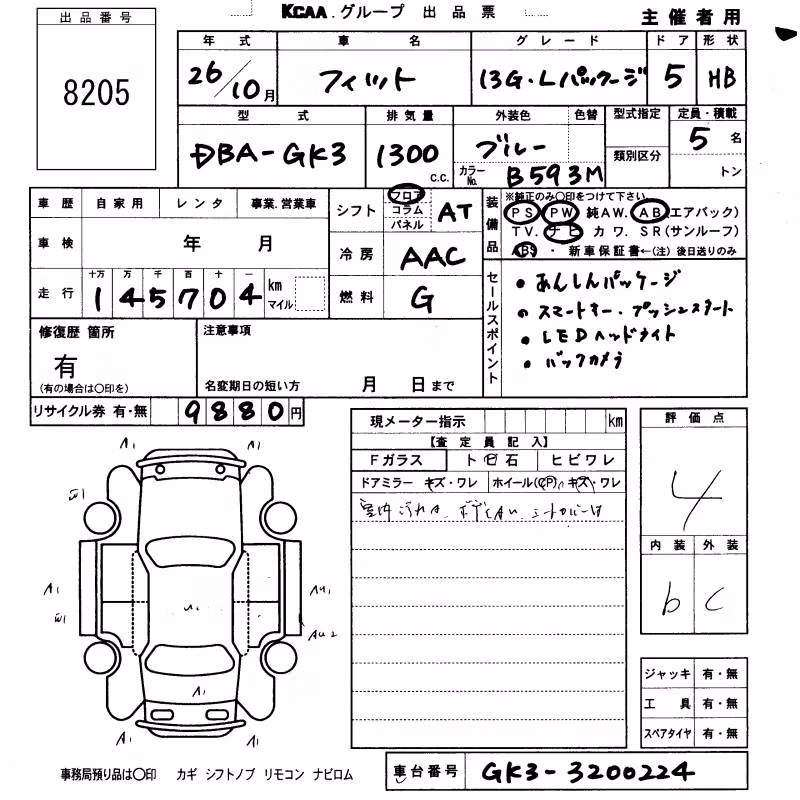 KCAA.グループ 出品票
主催者用
出品番号
8205
年式 車名 グレード ドア 形状
26/10月 フィット 13G・Lパッケージ 5 HB
型式 排気量 外装色 色替 型式指定 定員・積載
DBA-GK3 1300 c.c. ブルー 類別区分 5 名
カラーNo. B593M トン
車歴 自家用 レンタ 事業.営業車
シフト フロア コラム パネル AT
装備品
※純正のみ○印をつけて下さい
PS PW 純AW. AB(エアバック)
TV. ナビ カワ. SR(サンルーフ)
ABS ・ 新車保証書←(注)後日送りのみ
車検 年 月
冷房 AAC
走行 十万 万 千 百 十 一
145704 km マイル
燃料 G
セールスポイント
・あんしんパッケージ
・スマートキー・プッシュスタート
・LEDヘッドライト
・バックカメラ
修復歴 箇所
有
(有の場合は○印を)
注意事項
名変期日の短い方 月 日まで
リサイクル券 有・無 9880円
現メーター指示 km
【査定員記入】
Fガラス トビ石 ヒビワレ
ドアミラー キズ・ワレ ホイール(CP)、キズ・ワレ
評価点
4
内装 外装
b c
A1 A1
A1
A1
AU2
A1
A1 A1
ジャッキ 有・無
工具 有・無
スペアタイヤ 有・無
事務局預り品は○印 カギ シフトノブ リモコン ナビロム
車台番号 GK3-3200224